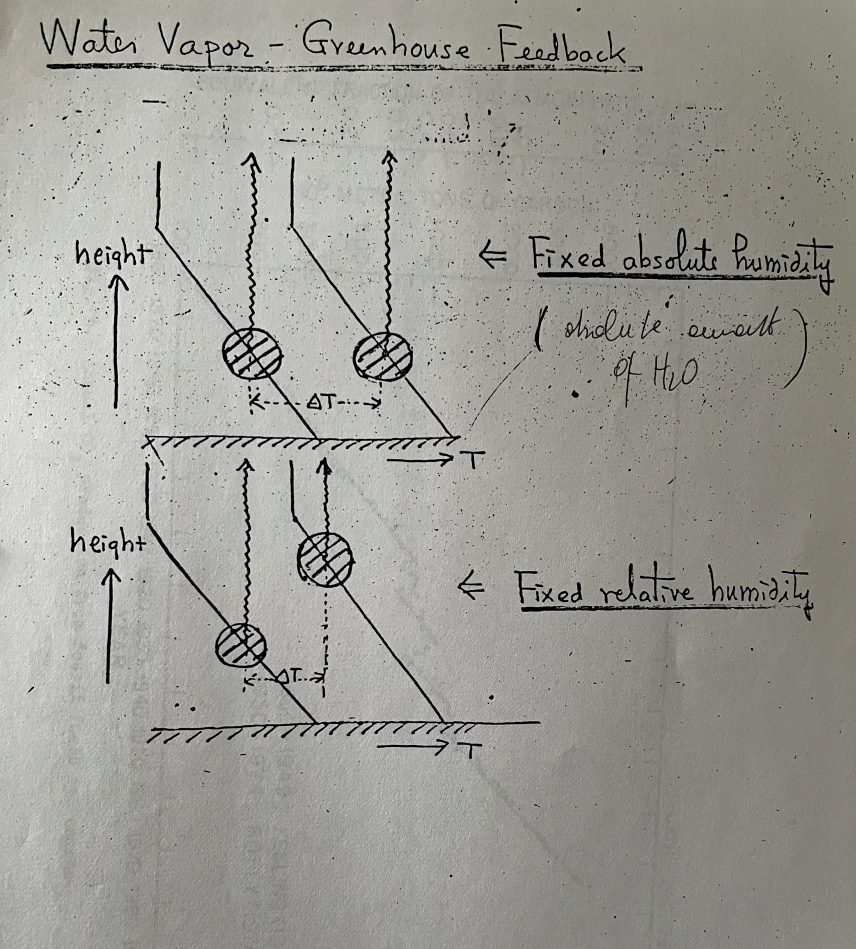 Water Vapor - Greenhouse Feedback
height
⇐ Fixed absolute humidity
(absolute amount
of H2O)
ΔT
T
height
⇐ Fixed relative humidity
ΔT
T